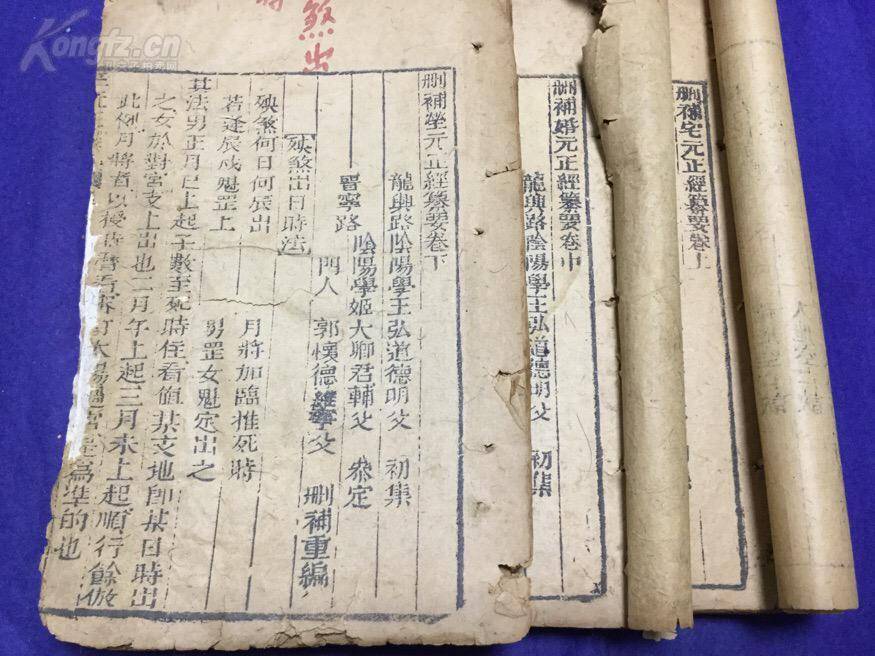 Kongfz.cn
煞出
刪補塋元正經纂要卷下
龍興路陰陽學王弘道德明父 初集
晉寧路陰陽學姬大卿君輔父 叅定
門人 郭懷德 父 刪補重編
殃煞出日時法
殃煞何日何辰出 月將加臨推死時
若逢辰戌魁罡上 男罡女魁定出之
其法男正月巳上起子數至死時住看值某支地即某日時出
之女於對宮支上出也二月午上起三月未上起順行餘倣
此例月將者以授時曆 太陽過宮 為準的也
刪補婚元正經纂要卷中
龍興路陰陽學王弘道德明父 初集
刪補宅元正經纂要卷上